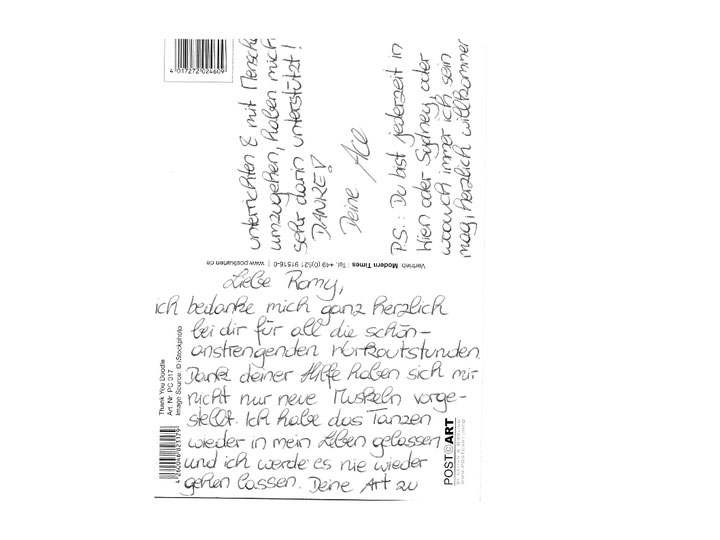 Liebe Romy,
ich bedanke mich ganz herzlich
bei dir für all die schön-
anstrengenden Workoutstunden.
Dank deiner Hilfe haben sich mir
nicht nur neue Muskeln vorge-
stellt. Ich habe das Tanzen
wieder in mein Leben gelassen
und ich werde es nie wieder
gehen lassen. Deine Art zu
unterrichten & mit Mensche
umzugehen, haben mich
sehr darin unterstützt!
DANKE!
Deine Ace
P.S.: Du bist jederzeit in
Wien oder Sydney, oder
wo auch immer ich sein
mag, herzlich willkommen
4 017272 024609
Vertrieb: Modern Times | Tel. +49 (0)521 91516-0 | www.postkarten.de
Thank You Doodle
Art. Nr. PC 017
Image Source: © iStockphoto
4 260046 823179
POST©ART